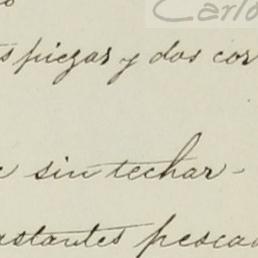 Carlo
s piezas y dos cor
sin techar-
astantes pesca